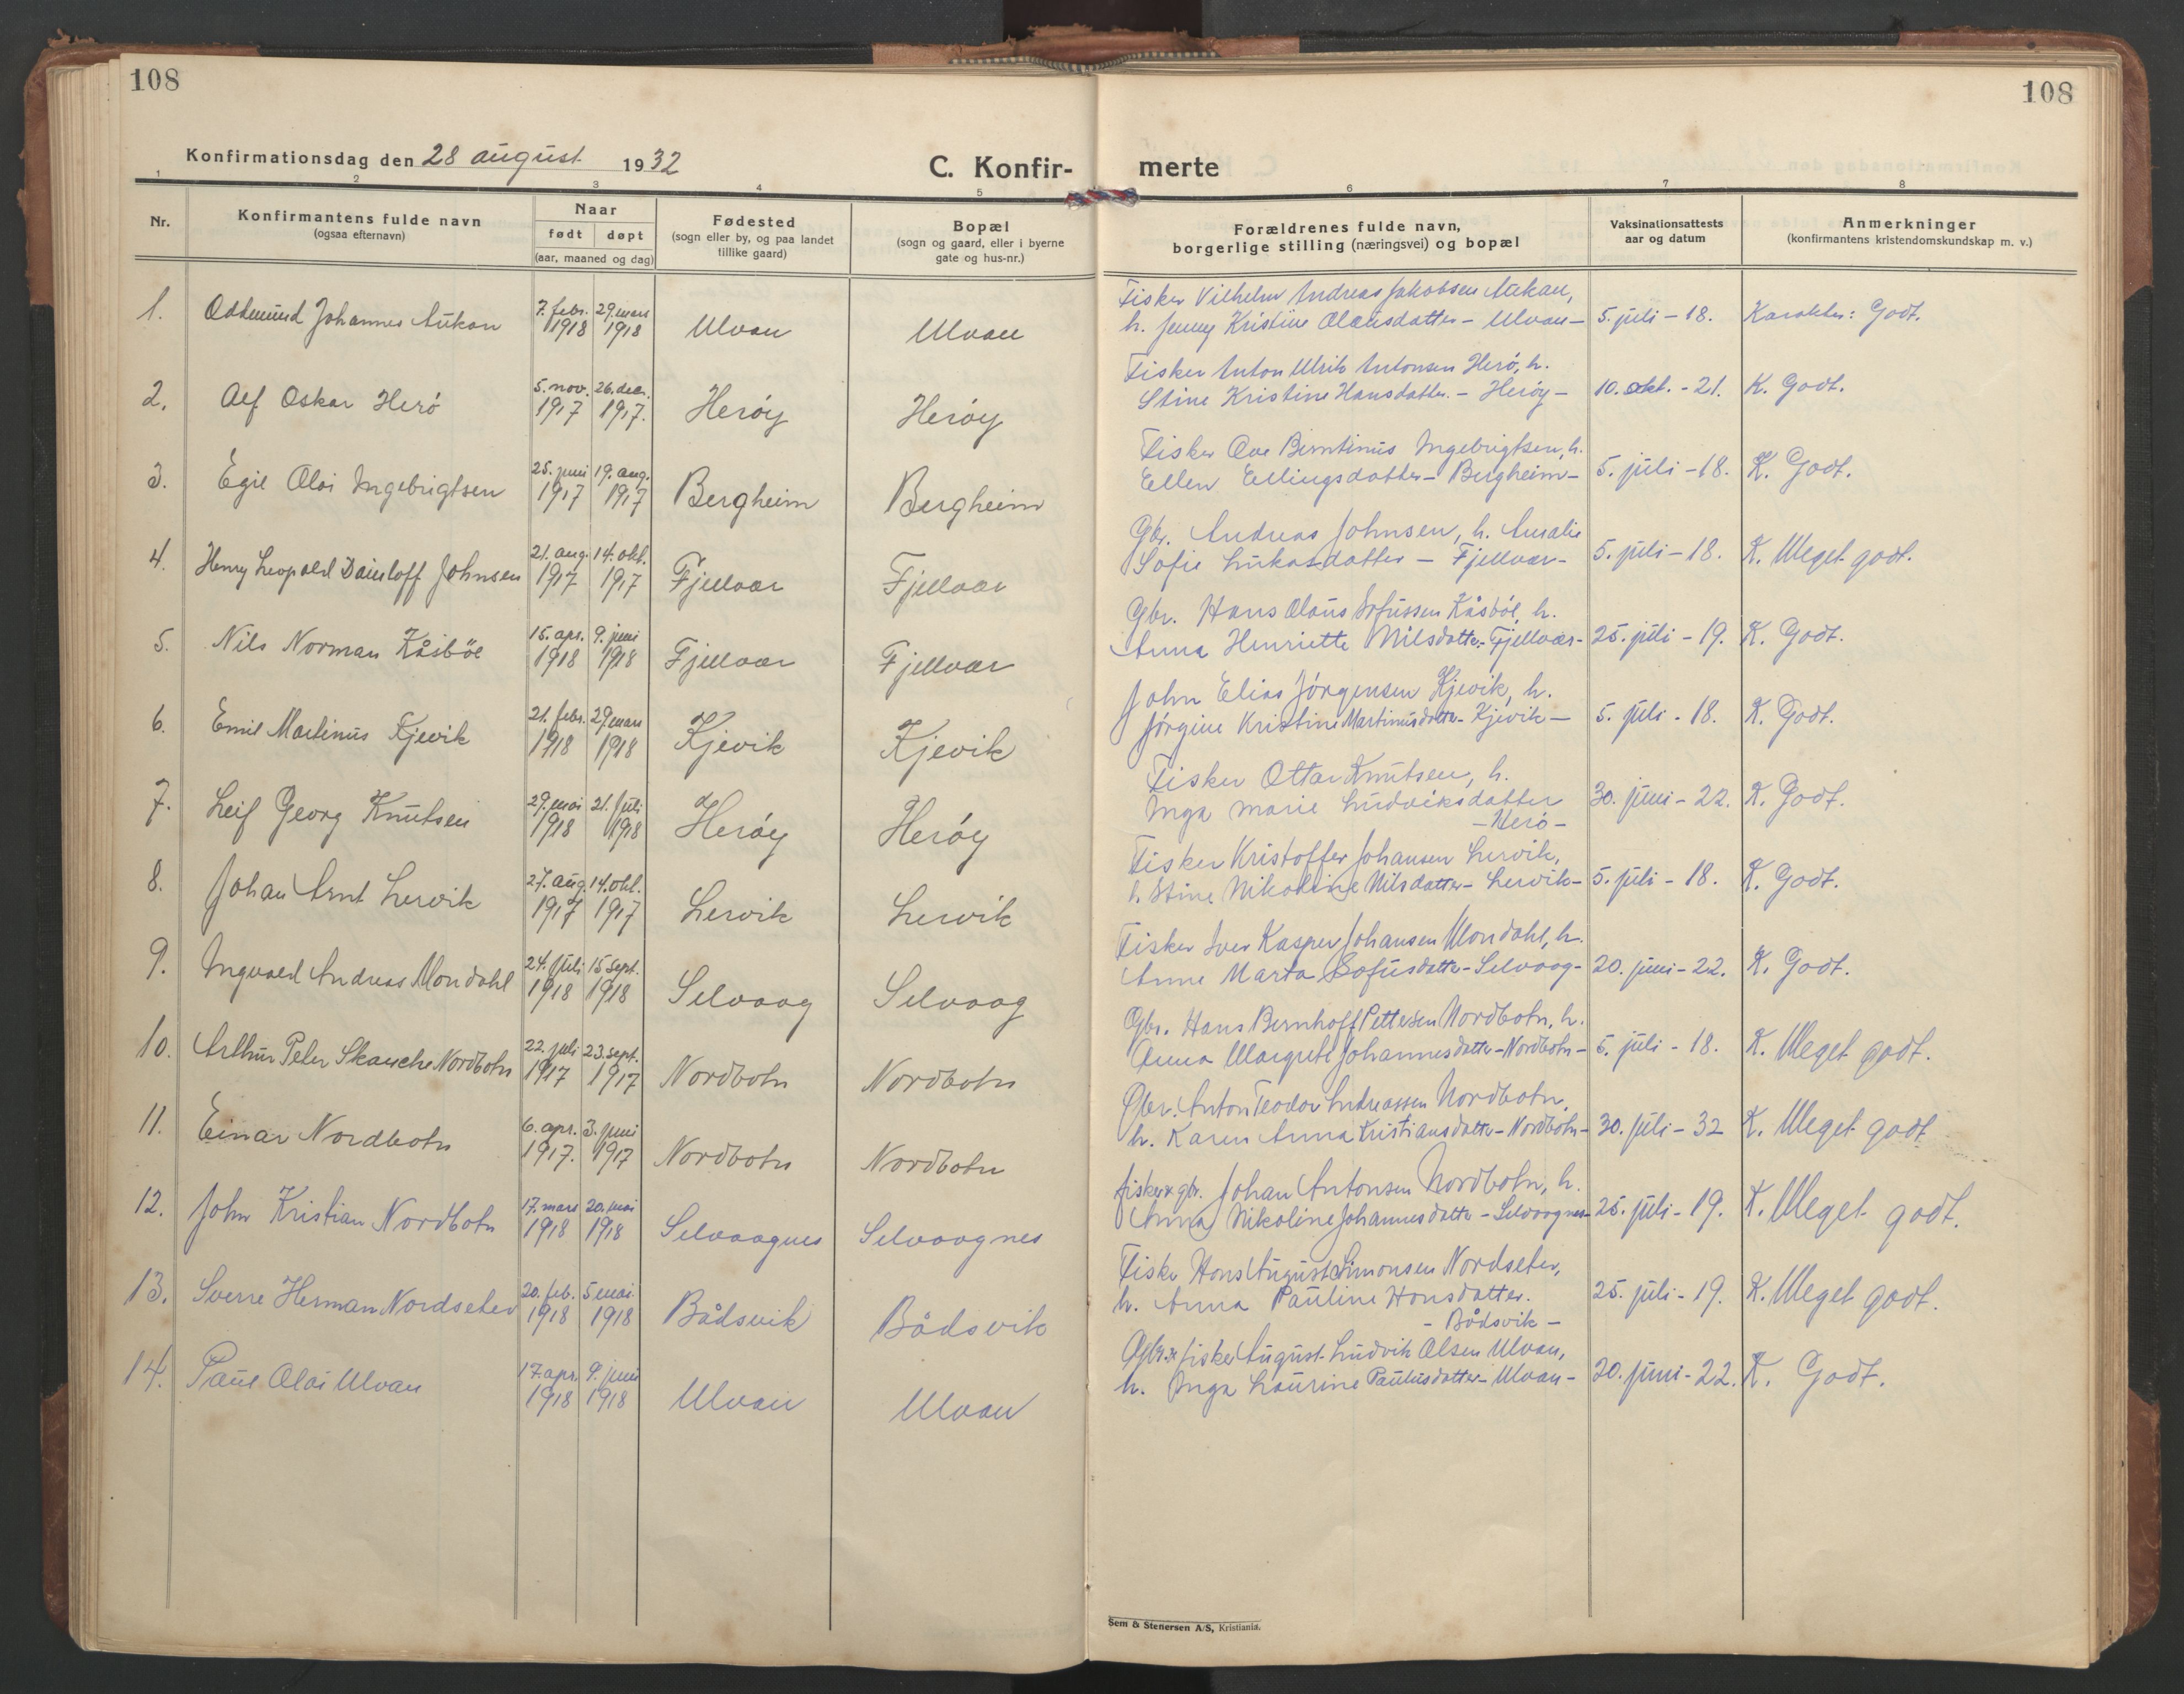 108
108
Konfirmationsdag den 28 august 1932
C. Konfir-
merte
1 2 3 4 5 6 7 8
Nr.
Konfirmantens fulde navn
(ogsaa efternavn)
Naar
født døpt
(aar, maaned og dag)
Fødested
(sogn eller by, og paa landet
tillike gaard)
Bopæl
(sogn og gaard, eller i byerne
gate og hus-nr.)
Forældrenes fulde navn,
borgerlige stilling (næringsvei) og bopæl
Vaksinationsattests
aar og datum
Anmerkninger
(konfirmantens kristendomskundskap m. v.)
1. Oddmund Johannes Aukan 7. febr. 1918 29. mars 1918 Ulvan Ulvan
Fisker Vilhelm Andreas Jakobsen Aukan,
h. Jenny Kristine Olausdatter - Ulvan - 5. juli - 18. Karakter: Godt.
2. Alf Oskar Herö 5. nov. 1917 26. dec. 1917. Heröy Heröy
Fisker Anton Ulrik Antonsen Herö, h.
Stine Kristine Hansdatter. - Heröy - 10. okt. - 21. K. Godt.
3. Egil Olai Ingebrigtsen 25. juni 1917 19. aug. 1917 Bergheim Bergheim
Fisker Ove Berntinus Ingebrigtsen, h.
Ellen Ellingsdatter - Bergheim - 5. juli - 18. K. Godt.
4. Henry Leopold Johnsen 21. aug. 1917 14. okt. 1917 Fjellvær Fjellvær
Gbr. Andreas Johnsen, h. Amalie
Sofie Lukasdatter - Fjellvær - 5. juli - 18. K. Meget godt.
5. Nils Norman Kåsböl 15. apr. 1918 9. juni 1918 Fjellvær Fjellvær
Gbr. Hans Olaus Sofussen Kåsböl, h.
Anna Henriette Nilsdatter - Fjellvær - 25. juli - 19. K. Godt.
6. Emil Martinus Kjevik 21. febr. 1918 29. mars 1918 Kjevik Kjevik
John Elias Jörgensen Kjevik, h.
Jörgine Kristine Martinusdatter - Kjevik - 5. juli - 18. K. Godt.
7. Leif Georg Knutsen 29. mai 1918 21. juli 1918 Heröy Heröy
Fisker Ottar Knutsen, h.
Inga Marie Ludviksdatter
- Herö - 30. juni - 22. K. Godt.
8. Johan Arnt Lervik 27. aug. 1917 14. okt. 1917 Lervik Lervik
Fisker Kristoffer Johansen Lervik,
h. Stine Nikoline Nilsdatter - Lervik - 5. juli - 18. K. Godt.
9. Ingvald Andreas Mondahl 24. juli 1918 15 sept. 1918 Selvaag Selvaag
Fisker Iver Kasper Johansen Mondahl, h.
Anne Marta Sofusdatter - Selvaag - 20. juni - 22. K. Godt.
10. Arthur Peter Skanche Nordbotn 22. juli 1917 23. sept. 1917 Nordbotn Nordbotn
Gbr. Hans Bernhoff Pettersen Nordbotn, h.
Anna Margrete Johannesdatter - Nordbotn - 5. juli - 18. K. Meget godt.
11. Einar Nordbotn 6. apr. 1917. 3. juni 1917 Nordbotn Nordbotn
Gbr. Anton Teodor Andreassen Nordbotn,
h. Karen Anna Kristiansdatter - Nordbotn - 30. juli - 32 K. Meget godt
12. John Kristian Nordbotn 17. mars 1918 20. mai 1918 Selvaagnes Selvaagnes
fisker & gbr. Johan Antonsen Nordbotn, h.
Anna Nikoline Johannesdatter - Selvaagnes - 25. juli - 19. K. Meget godt.
13. Sverre Herman Nordseter 20. feb. 1918 5 mai 1918 Bådsvik Bådsvik
Fisker Hans August Simonsen Nordseter,
h. Anna Pauline Hansdatter.
- Bådsvik - 25. juli - 19. K. Meget godt.
14. Paul Olai Ulvan 17. apr. 1918 9. juni 1918 Ulvan Ulvan
Gbr. & fisker August Ludvik Olsen Ulvan,
h. Inga Laurine Paulusdatter - Ulvan - 20. juni - 22. K. Godt.
Sem & Stenersen A/S, Kristiania.